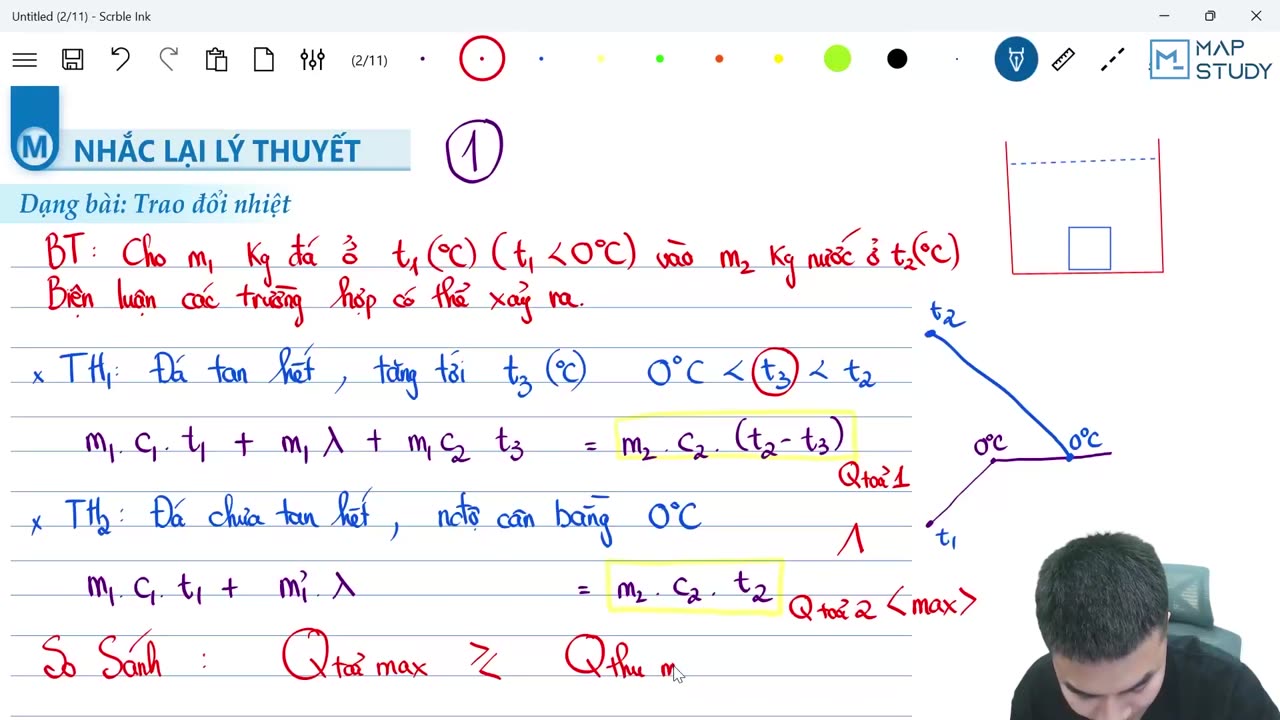 Untitled (2/11) - Scrble Ink
(2/11)
MAP
STUDY
M NHẮC LẠI LÝ THUYẾT
1
Dạng bài: Trao đổi nhiệt
BT: Cho m₁ Kg đá ở t₁ (°C) (t₁ < 0°C) vào m₂ Kg nước ở t₂(°C)
Biện luận các trường hợp có thể xảy ra.
x TH₁: Đá tan hết, tăng tới t₃ (°C) 0°C < t₃ < t₂
m₁. c₁. t₁ + m₁ λ + m₁ c₂ t₃ = m₂. c₂. (t₂ - t₃)
Qtoả 1
x TH₂: Đá chưa tan hết, nđộ cân bằng 0°C
Λ
m₁. c₁. t₁ + m₁'. λ = m₂. c₂. t₂
Qtoả 2 <max>
So Sánh: Qtoả max ≥ Qthu m
t₂
0°C
0°C
t₁